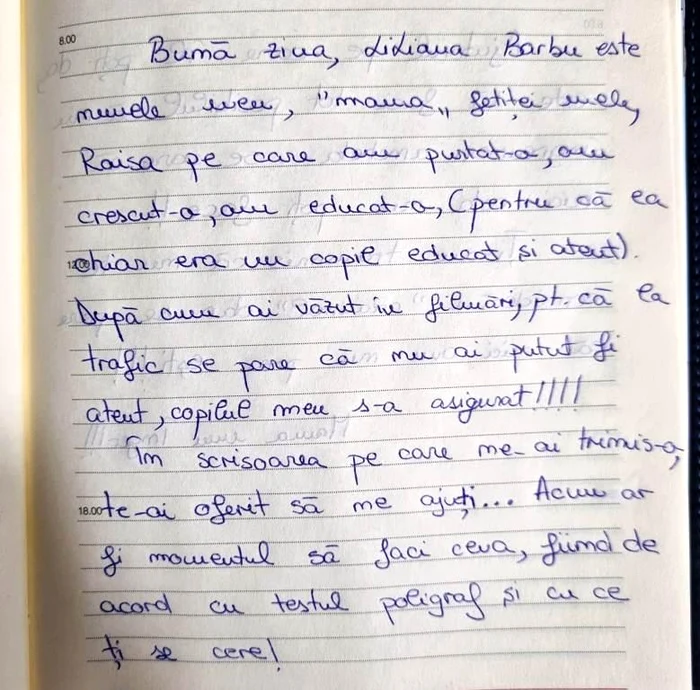 8.00
Bună ziua, Liliana Barbu este
numele meu, "mama„ fetiței mele,
Raisa pe care am purtat-o, am
crescut-o, am educat-o, (pentru că ea
chiar era un copil educat și atent).
După cum ai văzut în filmări, pt. că la
trafic se pare că nu ai putut fi
atent, copilul meu s-a asigurat!!!!
În scrisoarea pe care me-ai trimis-o,
18.00 te-ai oferit să me ajuți... Acum ar
fi momentul să faci ceva, fiind de
acord cu testul poligraf și cu ce
ți se cere!